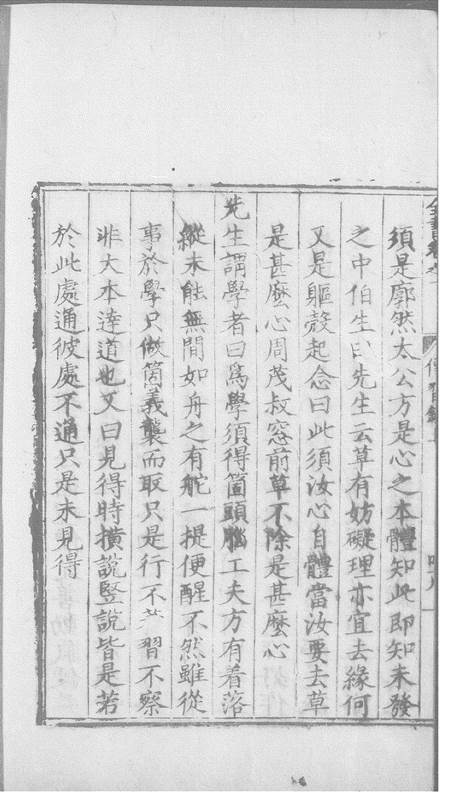 須是廓然太公方是心之本體知此即知未發
之中伯生曰先生云草有妨礙理亦宜去緣何
又是軀殼起念曰此須汝心自體當汝要去草
是甚麼心周茂叔窓前草不除是甚麼心
先生謂學者曰爲學須得箇頭腦工夫方有着落
縱未能無間如舟之有舵一提便醒不然雖從
事於學只做箇義襲而取只是行不著習不察
非大本達道也又曰見得時横說竪說皆是若
於此處通彼處不通只是未見得